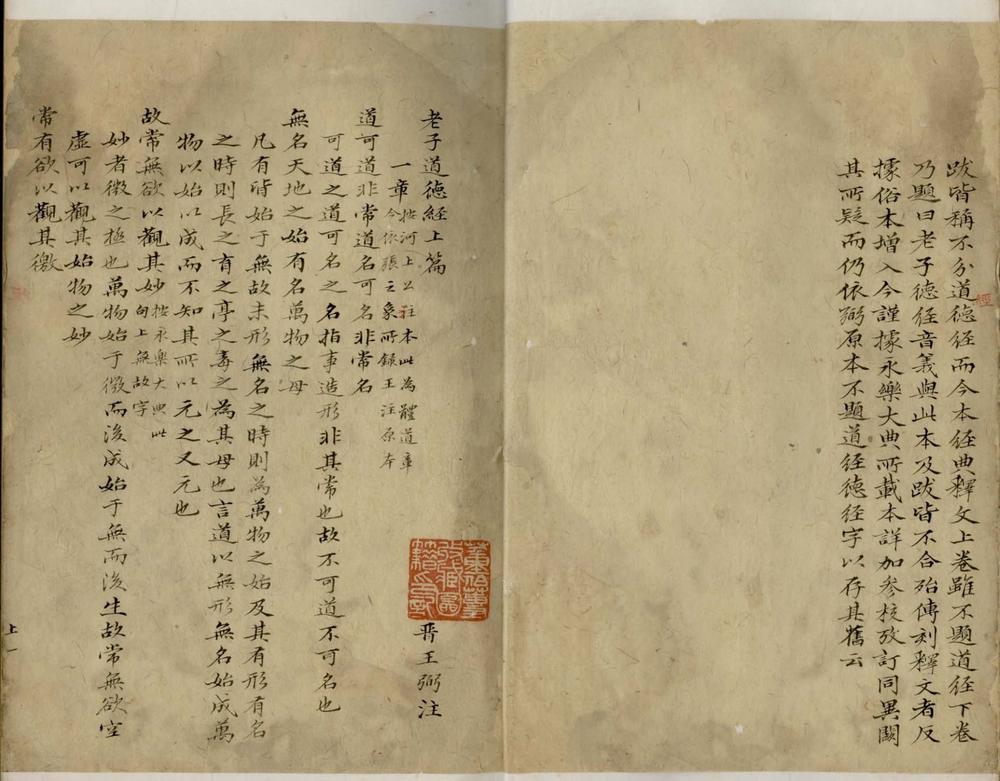 跋皆稱不分道德經而今本經典釋文上卷雖不題道經下卷
乃題曰老子德經音義與此本及跋皆不合殆傳刻釋文者反
據俗本增入今謹據永樂大典所載本詳加參核攷訂同異闕
其所疑而仍依弼原本不題道經德經字以存其舊云
經
老子道德經上篇
晉王弼注
一章按河上公注本此為體道章
今依張之象所錄王注原本
道可道非常道名可名非常名
可道之道可名之名指事造形非其常也故不可道不可名也
無名天地之始有名萬物之母
凡有皆始于無故未形無名之時則為萬物之始及其有形有名
之時則長之育之亭之毒之為其母也言道以無形無名始成萬
物以始以成而不知其所以元之又元也
故常無欲以觀其妙按永樂大典此
句上無故字
妙者微之極也萬物始于微而後成始于無而後生故常無欲空
虛可以觀其始物之妙
常有欲以觀其徼
上一